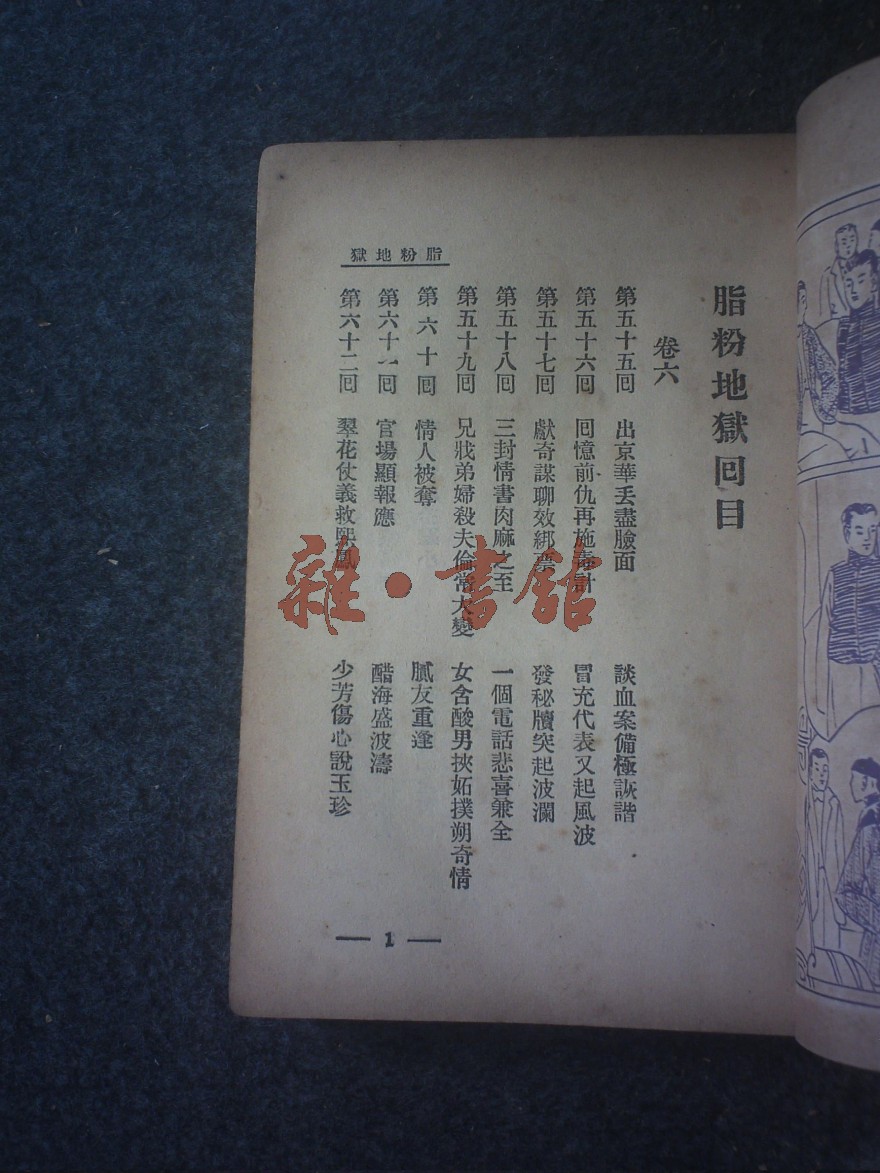 脂粉地獄回目
卷六
第五十五回 出京華丟盡臉面 談血案備極詼諧
第五十六回 回憶前仇再施毒計 冒充代表又起風波
第五十七回 獻奇謀聊效綁票 發秘牘突起波瀾
第五十八回 三封情書肉麻之至 一個電話悲喜兼全
第五十九回 兄戕弟婦殺夫倫常大變 女含酸男挾妬撲朔奇情
第六十回 情人被奪 膩友重逢
第六十一回 官場顯報應 醋海盛波濤
第六十二回 翠花仗義救熙鳳 少芳傷心說玉珍
脂粉地獄
— 1 —
雜·書館